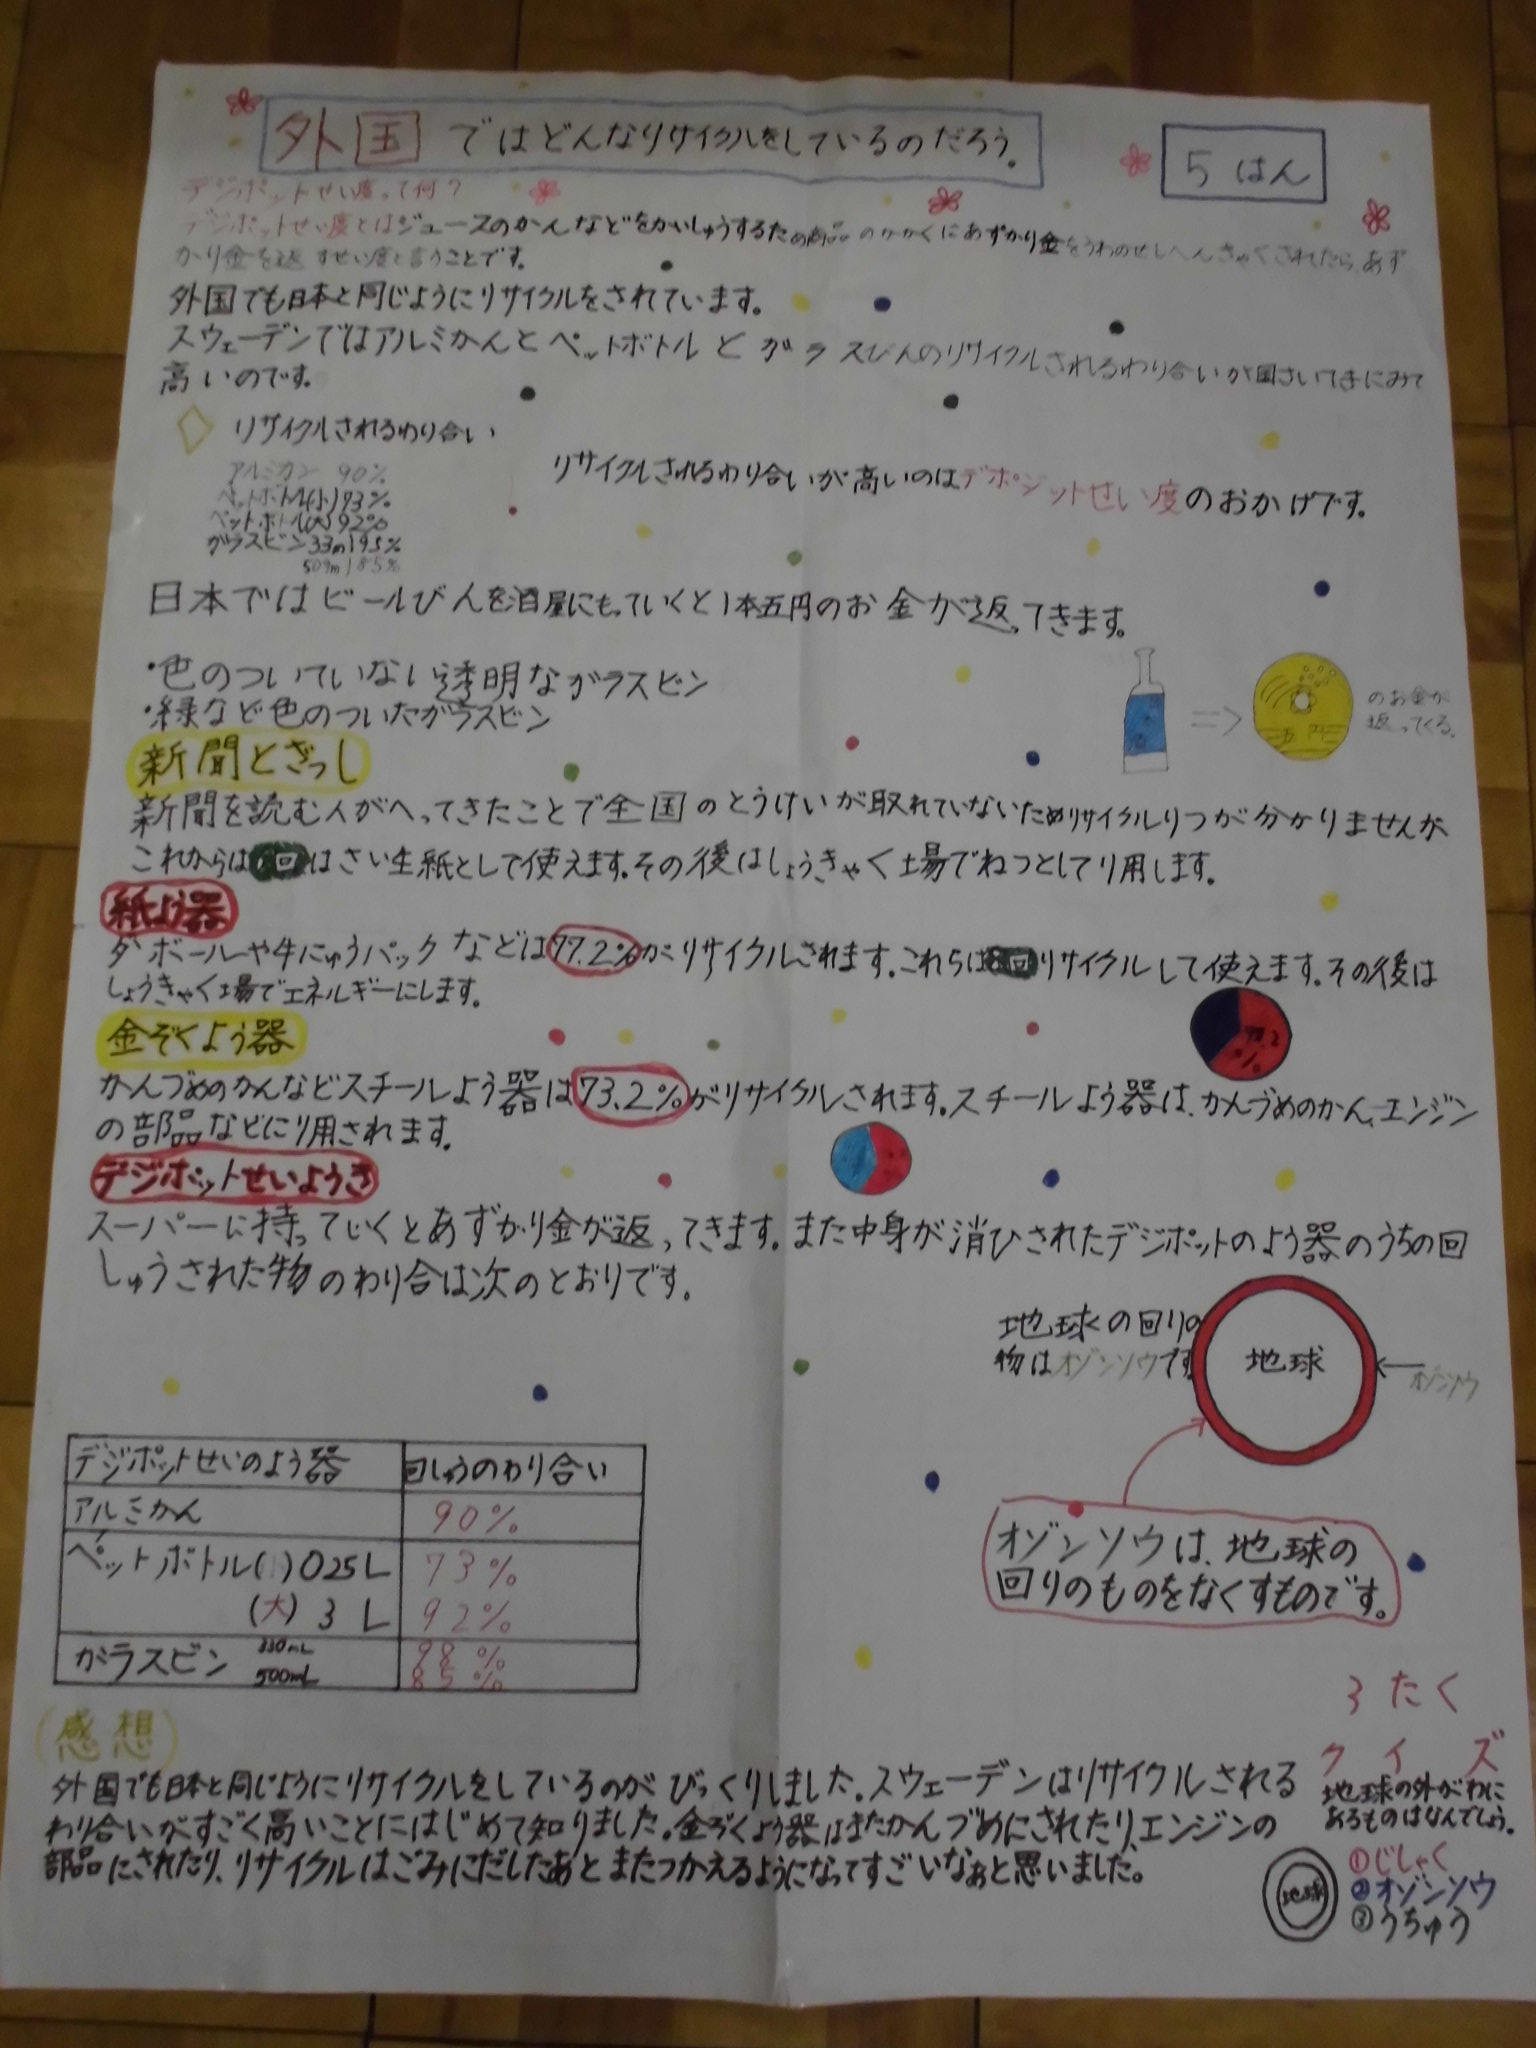 外国ではどんなリサイクルをしているのだろう。
5はん
デジポットせい度って何？
デジポットせい度とはジュースのかんなどをかいしゅうするため商品のかかくにあずかり金をうわのせしへんきゃくされたら、あず
かり金を返すせい度と言うことです。
外国でも日本と同じようにリサイクルをされています。
スウェーデンではアルミかんとペットボトルとガラスびんのリサイクルされるわり合いが国さいてきにみて
高いのです。
リサイクルされるわり合い
アルミカン 90%
ペットボトル(小)93%
ペットボトル(大)92%
ガラスビン33ml95%
509ml85%
リサイクルされるわり合いが高いのはデポジットせい度のおかげです。
日本ではビールびんを酒屋にもっていくと1本五円のお金が返ってきます。
・色のついていない透明なガラスビン
・緑など色のついたガラスビン
お酒
⇒
五円
のお金が
返ってくる。
新聞とざっし
新聞を読む人がへってきたことで全国のとうけいが取れていないためリサイクルりつが分かりませんが
これからは 回はさい生紙として使えます。その後はしょうきゃく場でねつとしてり用します。
紙よう器
ダボールや牛にゅうパックなどは77.2%がリサイクルされます。これらは8回リサイクルして使えます。その後は
しょうきゃく場でエネルギーにします。
金ぞくよう器
かんづめのかんなどスチールよう器は73.2%がリサイクルされます。スチールよう器は、かんづめのかん、エンジン
の部品などにり用されます。
デジポットせいようき
スーパーに持っていくとあずかり金が返ってきます。また中身が消ひされたデジポットのよう器のうちの回
しゅうされた物のわり合は次のとおりです。
地球くの回りの
物はオゾンソウです
地球
オゾンソウ
オゾンソウは、地球の
回りのものをなくすものです。
デジポットせいのよう器 回しゅうのわり合い
アルミかん 90%
ペットボトル(小)025L 73%
(大) 3L 92%
ガラスビン 330mL 98%
500mL 85%
(感想)
外国でも日本と同じようにリサイクルをしているのがびっくりしました。スウェーデンはリサイクルされる
わり合いがすごく高いことにはじめて知りました。金ぞくよう器はまたかんづめにされたり、エンジンの
部品にされたり、リサイクルはごみにだしたあとまたつかえるようになってすごいなぁと思いました。
3たく
クイズ
地球の外がわに
あるものはなんでしょう。
地球
①じしゃく
②オゾンソウ
③うちゅう